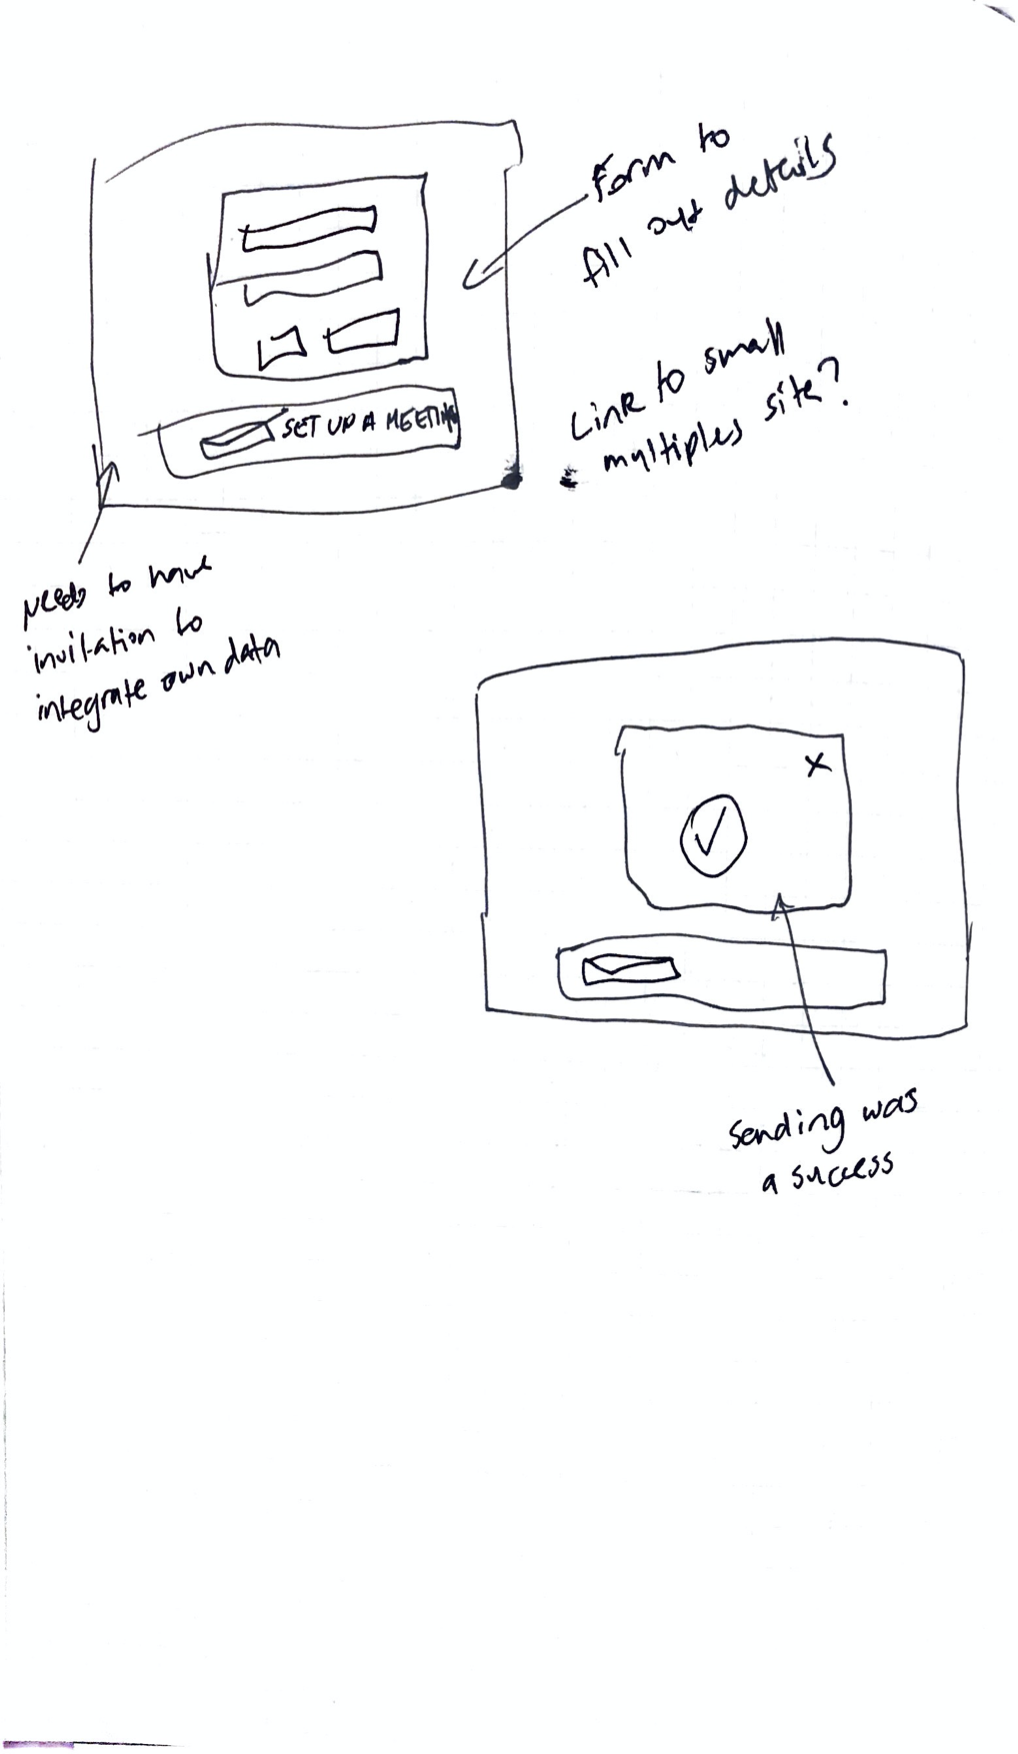 Form to
fill out details
SET UP A MEETING
Link to small
multiples site?
Needs to have
invitation to
integrate own data
X
Sending was
a success